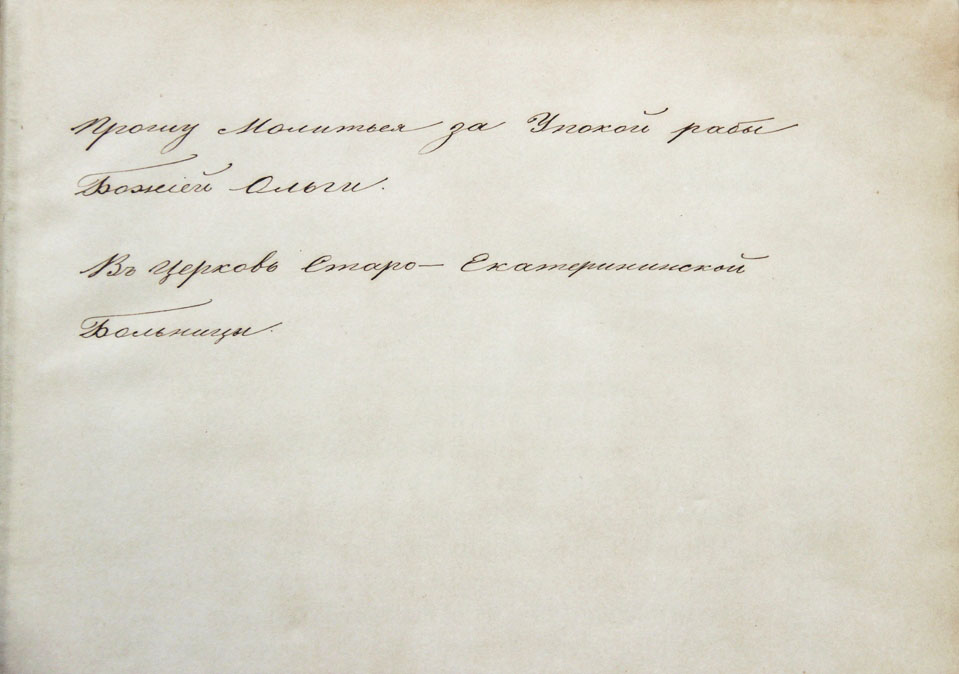 Прошу Молиться за Упокой рабы
Божіей Ольги.
Въ Церковь Старо- Екатерининской
Больницы.